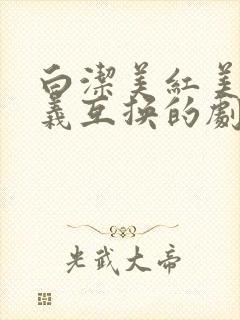 白潔美紅美
義互换的劇
光武大帝